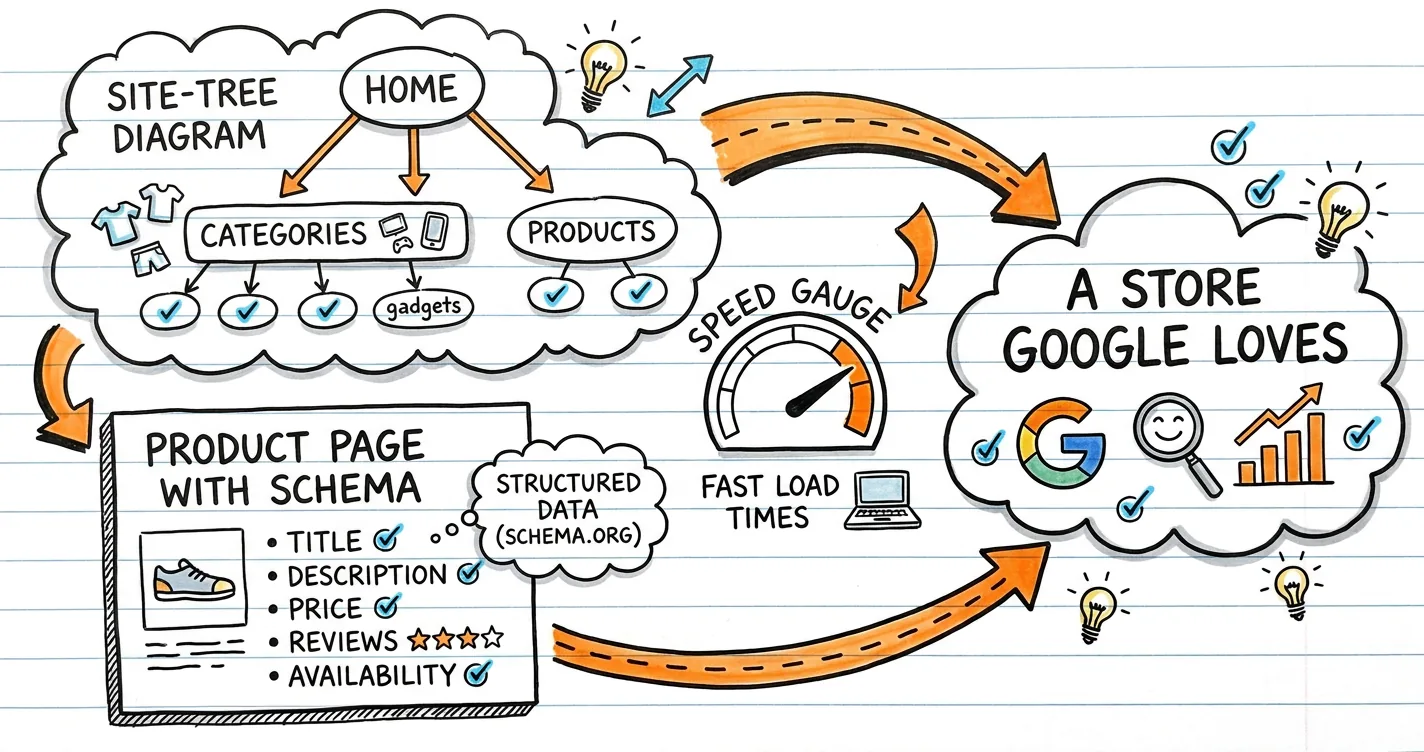 SITE-TREE
DIAGRAM
HOME
CATEGORIES
PRODUCTS
gadgets
PRODUCT PAGE
WITH SCHEMA
• TITLE
• DESCRIPTION
• PRICE
• REVIEWS
• AVAILABILITY
STRUCTURED
DATA
(SCHEMA.ORG)
SPEED GAUGE
FAST LOAD
TIMES
A STORE
GOOGLE LOVES
G